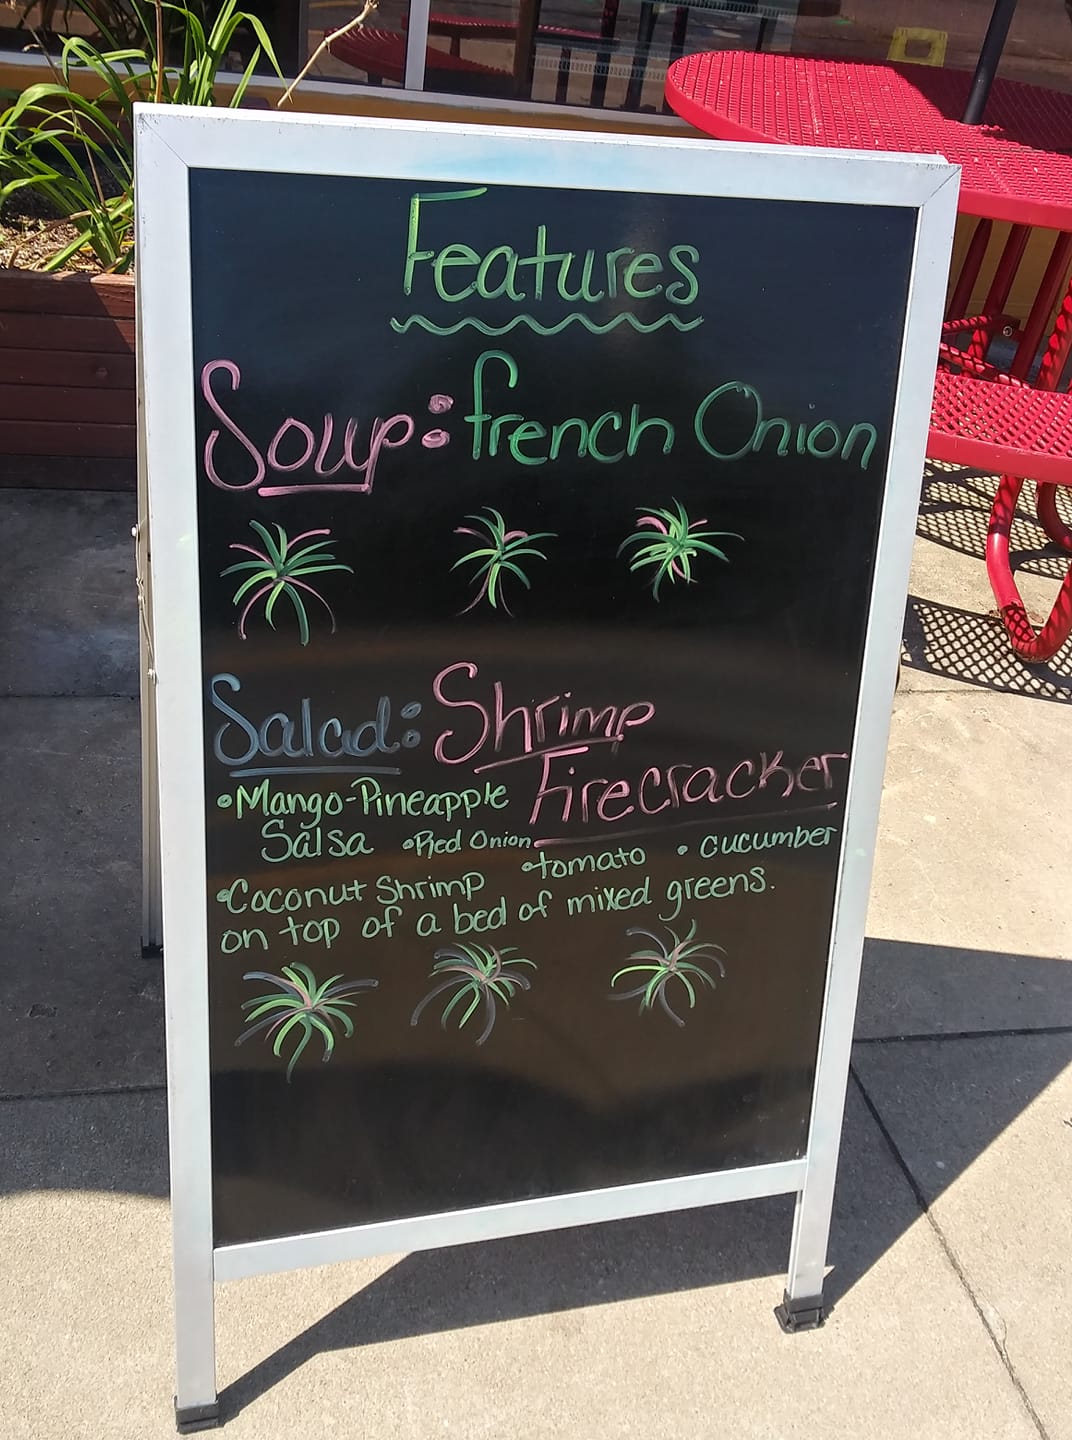 Features
Soup: French Onion
Salad: Shrimp
Firecracker
•Mango-Pineapple
Salsa •Red Onion
•tomato •cucumber
•Coconut Shrimp
on top of a bed of mixed greens.